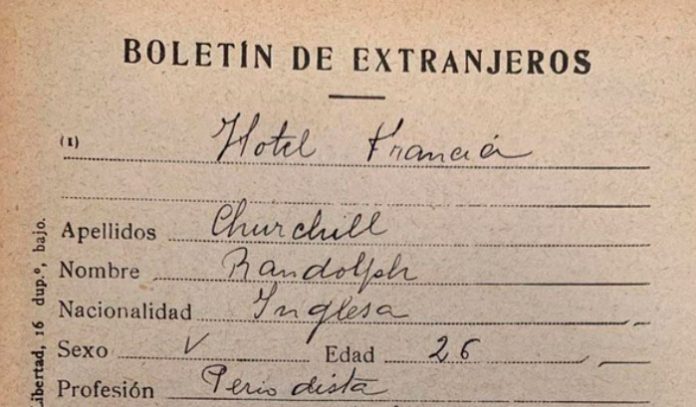 BOLETÍN DE EXTRANJEROS
(1) Hotel Francia
Apellidos Churchill
Nombre Randolph
Nacionalidad Inglesa
Sexo V Edad 26
Profesión Periodista
Libertad, 16 dup.º, bajo.